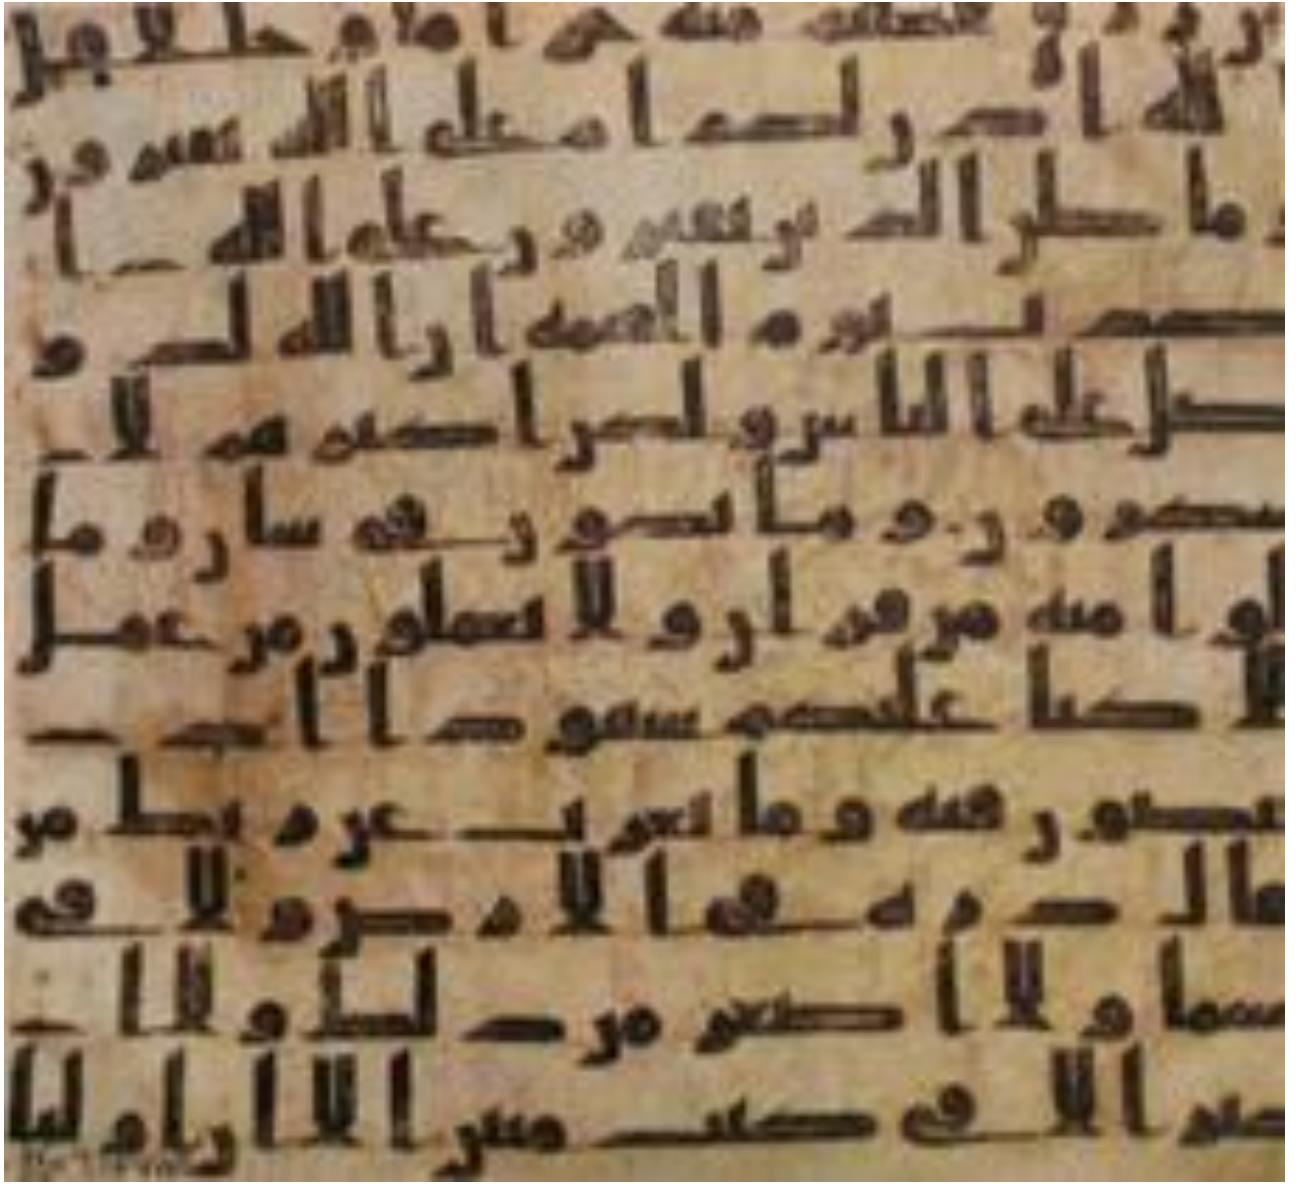 رزق فجعلتم منه حراما و حللا قل
الله اذن لكم ام على الله تفترون
و ما ظن الذين يفترون على الله ا
لكذب يوم القيمه ان الله لذو
فضل على الناس و لكن اكثرهم لا
يشكرون و ما تكون في شان و ما
تتلوا منه من قران و لا تعملون من عمل
الا كنا عليكم شهودا اذ
تفيضون فيه و ما يعزب عن ربك من
مثقال ذره في الارض و لا في
السما و لا اصغر من ذلك و لا ا
كبر الا في كتب مبين الا ان اوليا